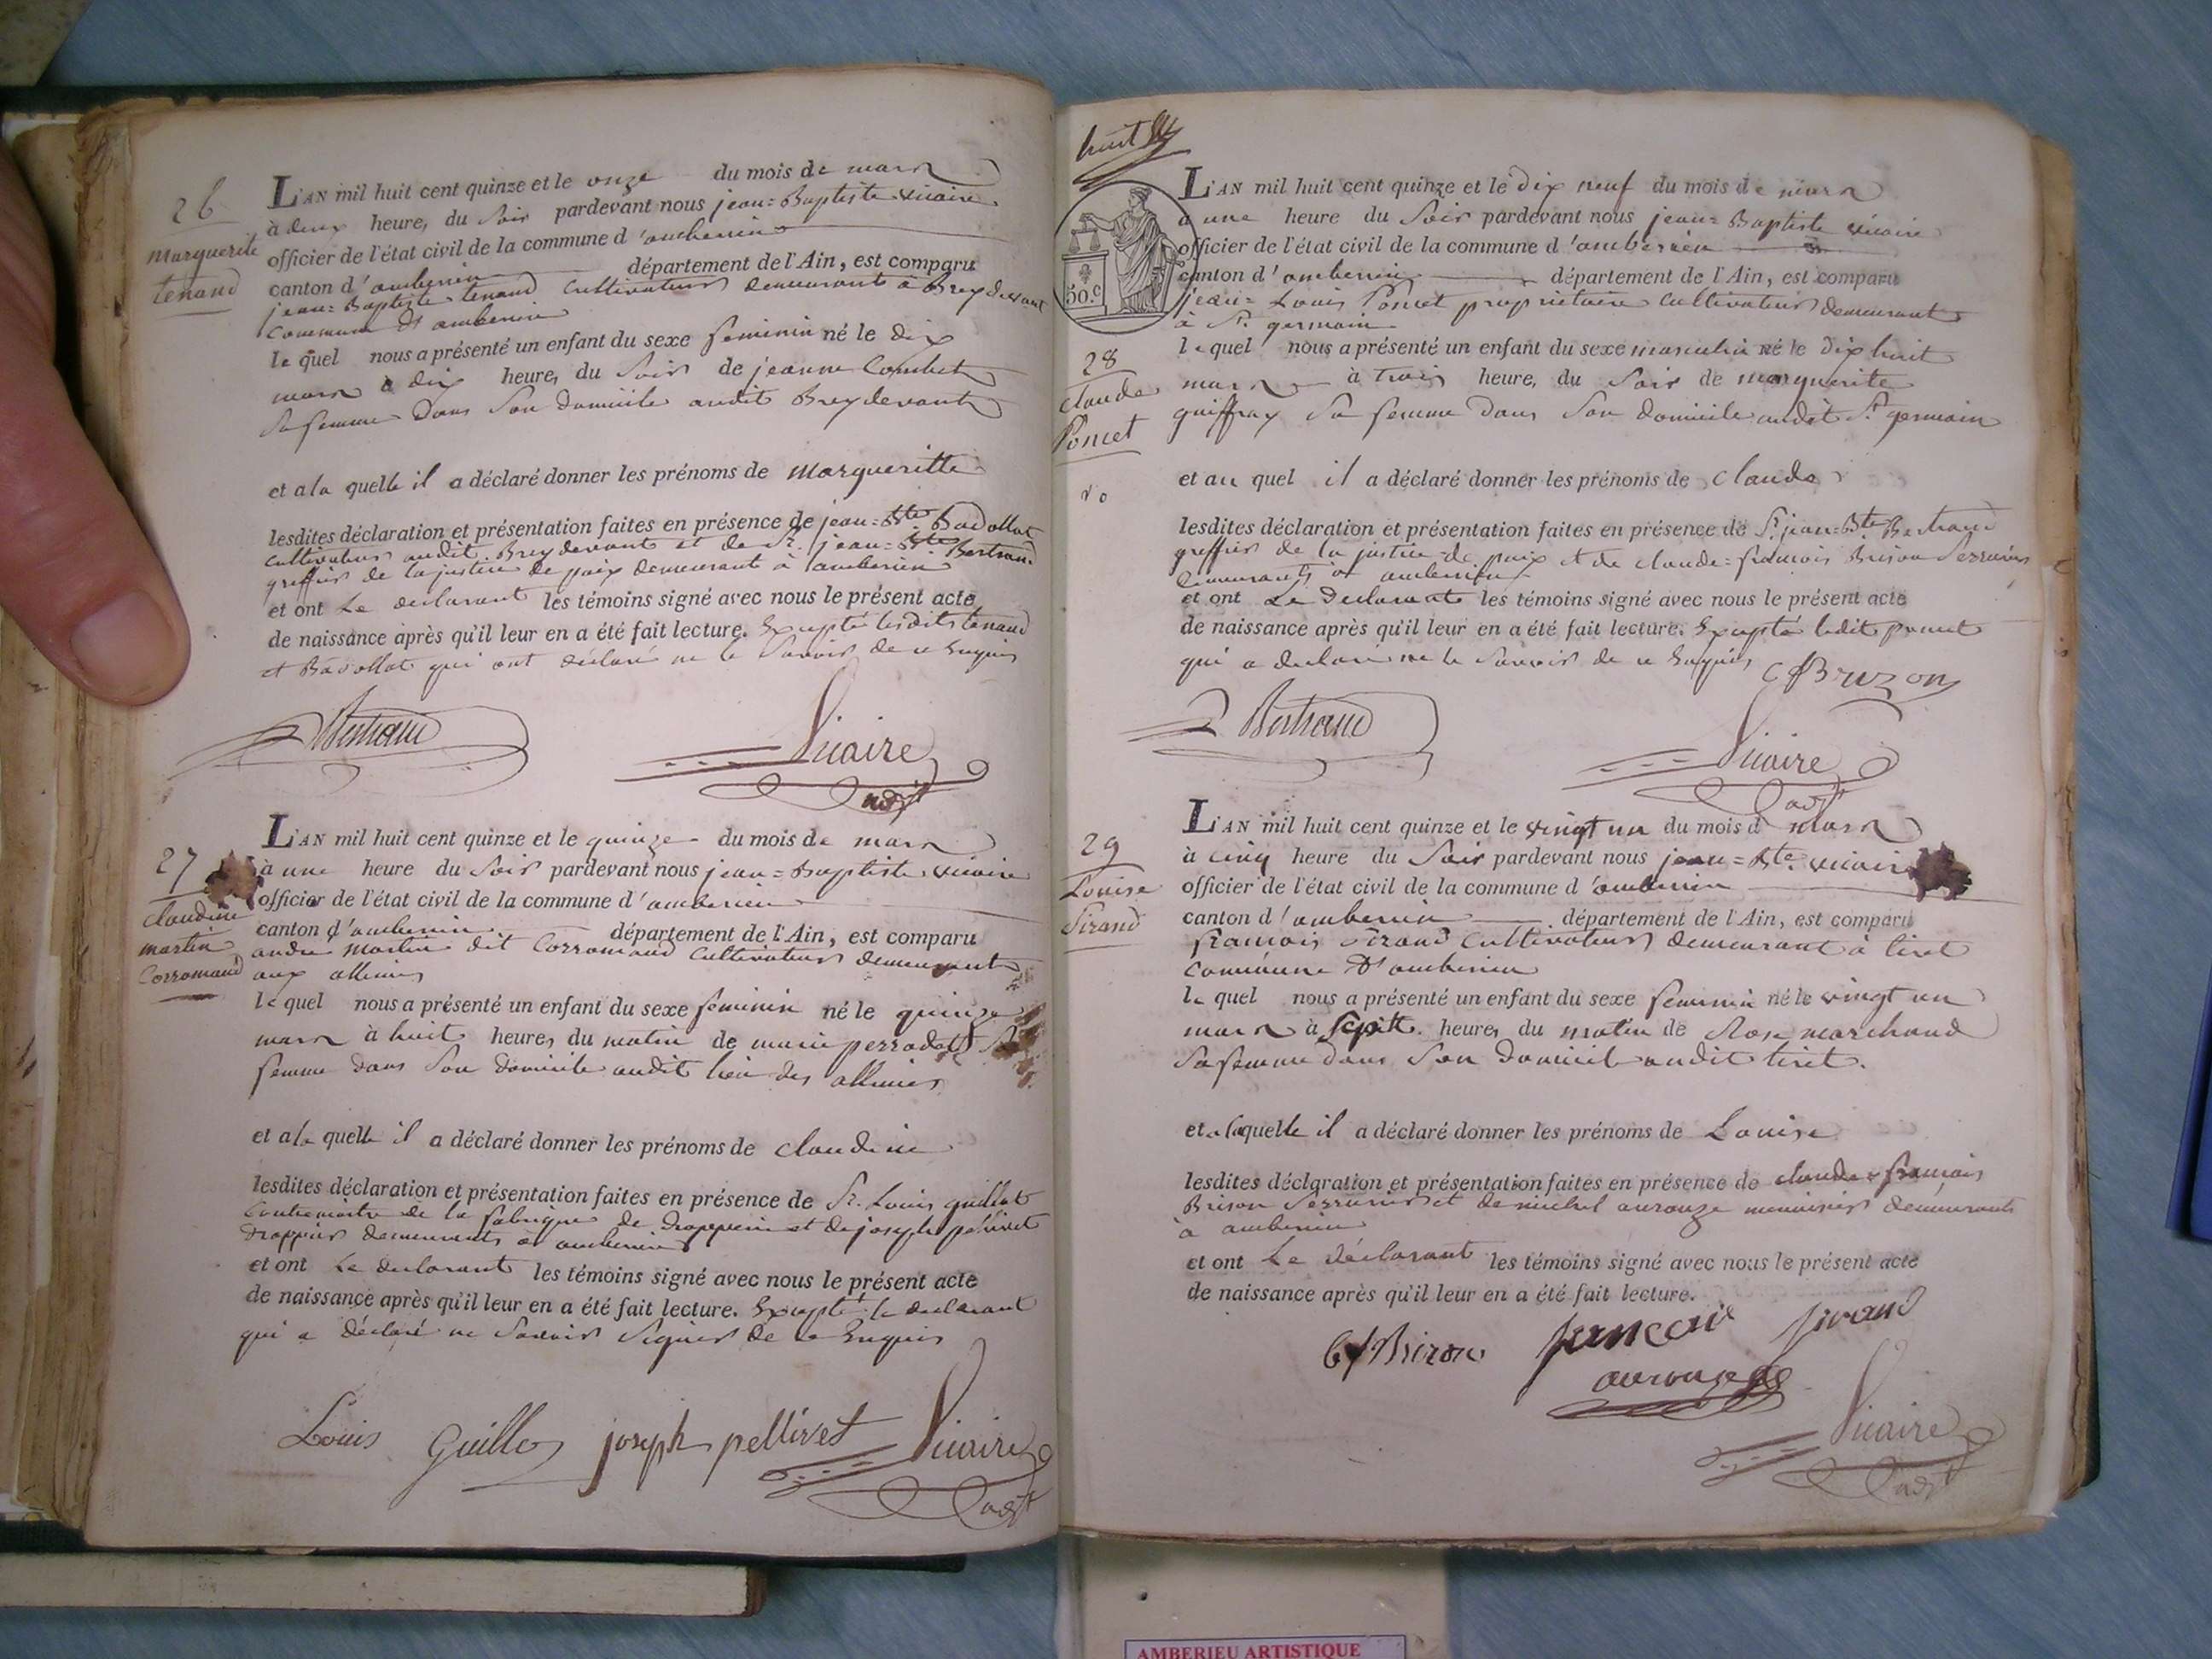 26
Marguerite
tenand
L'AN mil huit cent quinze et le onze du mois de mars
à deux heure, du soir pardevant nous jean=Baptiste vicaire
officier de l'état civil de la commune d'amberieu
canton d'amberieu département de l'Ain, est comparu
jean=Baptiste tenand cultivateur demeurant à Breydevant
commune d'amberieu
le quel nous a présenté un enfant du sexe feminin né le dix
mars à dix heure, du soir de jeanne Combet
sa femme dans son domicile audit Breydevant
et a la quelle il a déclaré donner les prénoms de margueritte
lesdites déclaration et présentation faites en présence de jean=Bte Badollat
cultivateur audit Breydevant et de Sr. jean=Bte Bertrand
greffier de la justice de paix demeurant à amberieu
et ont le declarant les témoins signé avec nous le présent acte
de naissance après qu'il leur en a été fait lecture. Excepté lesdits tenand
et Badollat qui ont déclaré ne le savoir de ce enquis
Bertrand Vicaire
adjt
27
claudine
martin
Corromand
L'AN mil huit cent quinze et le quinze du mois de mars
à une heure du soir pardevant nous jean=Baptiste vicaire
officier de l'état civil de la commune d'amberieu
canton d'amberieu département de l'Ain, est comparu
andré martin dit Corromand cultivateur demeurant
aux allimes
le quel nous a présenté un enfant du sexe feminin né le quinze
mars à huit heures du matin de marie perrodat Sa
femme dans son domicile audit lieu des allimes
et a la quelle il a déclaré donner les prénoms de claudine
lesdites déclaration et présentation faites en présence de Sr. Louis guillot
contremaitre de la fabrique de drapperie et de joseph pellivet
drappier demeurants à amberieu
et ont le declarant les témoins signé avec nous le présent acte
de naissance après qu'il leur en a été fait lecture. Excepté le declarant
qui a déclaré ne savoir signer de ce enquis
Louis Guillot joseph pellivet Vicaire
adjt
huit
50.c
28
claude
Poncet
L'AN mil huit cent quinze et le dix neuf du mois de mars
à une heure du soir pardevant nous jean=Baptiste vicaire
officier de l'état civil de la commune d'amberieu
canton d'amberieu département de l'Ain, est comparu
jean=Louis Poncet proprietaire cultivateur demeurant
à St. germain
le quel nous a présenté un enfant du sexe masculin né le dix huit
mars à trois heure, du soir de marguerite
guiffray sa femme dans son domicile audit St. germain
et au quel il a déclaré donner les prénoms de claude
lesdites déclaration et présentation faites en présence de Sr. jean=Bte Bertrand
greffier de la justice de paix et de claude=francois Brison Serrurier
demeurants à amberieu
et ont le declarant les témoins signé avec nous le présent acte
de naissance après qu'il leur en a été fait lecture. Excepté ledit poncet
qui a declaré ne le savoir de ce enquis
CfBrizon
Bertrand Vicaire
adjt
29
Louise
Sirand
L'AN mil huit cent quinze et le vingt un du mois d mars
à cinq heure du soir pardevant nous jean=Bte. vicaire
officier de l'état civil de la commune d'amberieu
canton d'amberieu département de l'Ain, est comparu
francois Sirand cultivateur demeurant à tiret
commune d'amberieu
le quel nous a présenté un enfant du sexe feminin né le vingt un
mars à sept heures du matin de Rose marchand
sa femme dans son domicile audit tiret.
et a laquelle il a déclaré donner les prénoms de Louise
lesdites déclaration et présentation faites en présence de claude francois
Brison Serrurier et de michel aurouze menuisier demeurants
à amberieu
et ont le déclarant les témoins signé avec nous le présent acte
de naissance après qu'il leur en a été fait lecture.
CfBrizon francois sirand
aurouze
Vicaire
adjt
AMBERIEU ARTISTIQUE